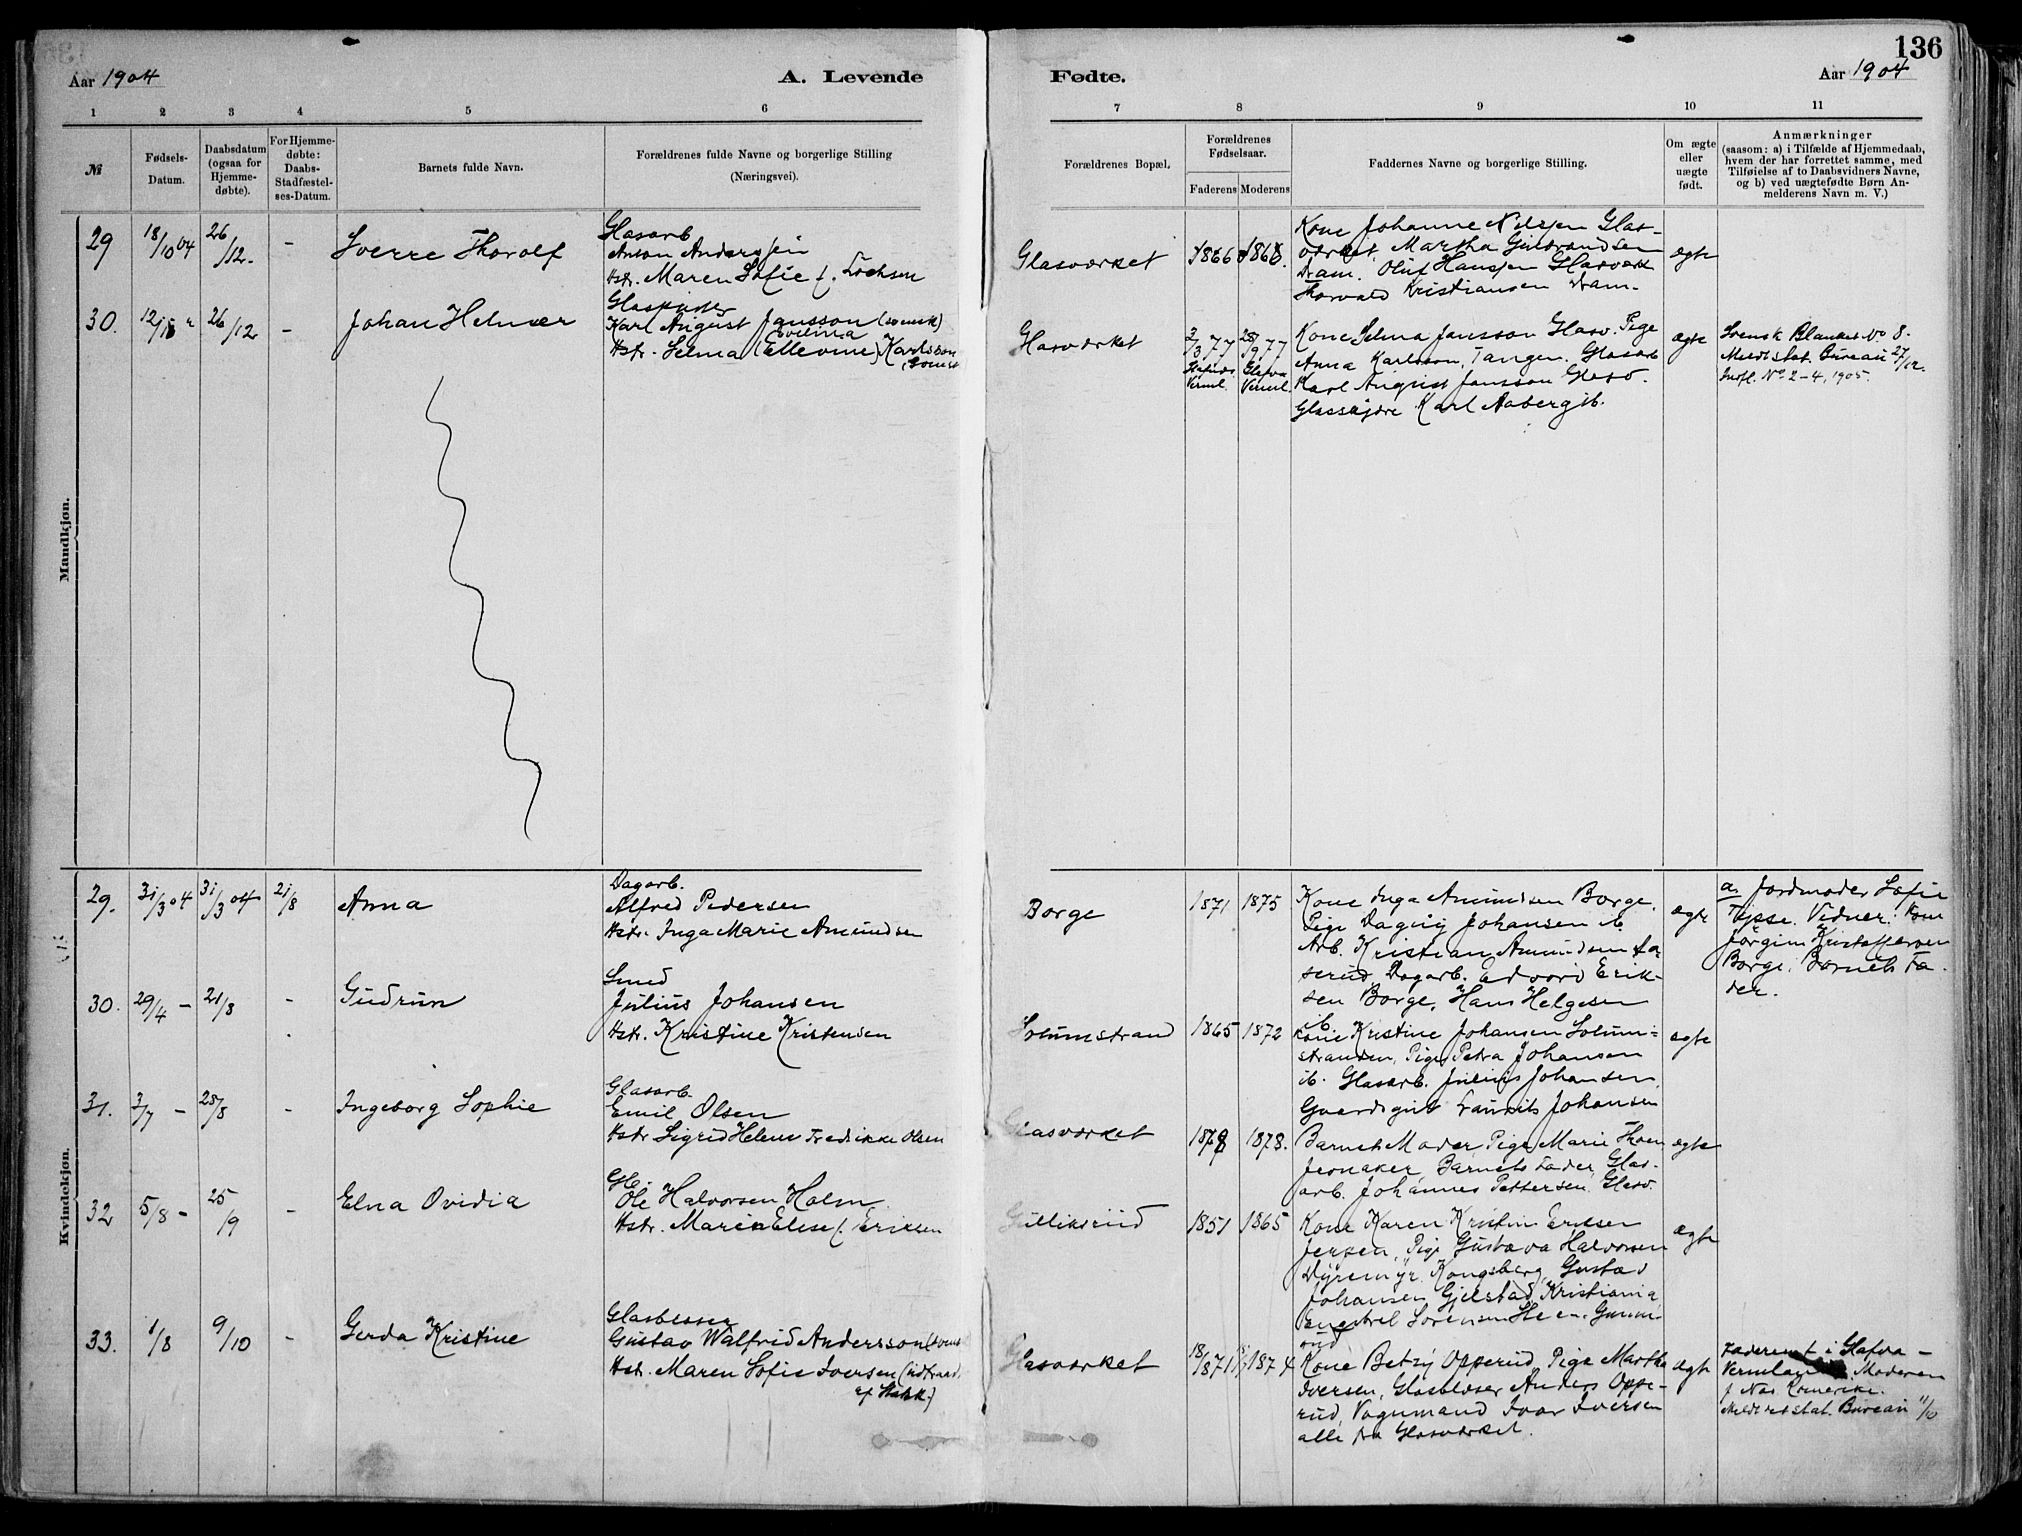 136
Aar 1904
A. Levende
Fødte.
Aar 1904
1 2 3 4 5 6 7 8 9 10 11
№
Fødsels-
Datum.
Daabsdatum
(ogsaa for
Hjemme-
døbte).
For Hjemme-
døbte:
Daabs-
Stadfæstel-
ses-Datum.
Barnets fulde Navn.
Forældrenes fulde Navne og borgerlige Stilling
(Næringsvei).
Forældrenes Bopæl,
Forældrenes
Fødselsaar.
Faderens Moderens
Faddernes Navne og borgerlige Stilling.
Om ægte
eller
uægte
født.
Anmærkninger
(saasom: a) i Tilfælde af Hjemmedaab,
hvem der har forrettet samme, med
Tilføielse af to Daabsvidners Navne,
og b) ved uægtefødte Børn An-
melderens Navn m. V.)
Mandkjøn.
29 18/10 04 26/12. - Sverre Thorolf
Glasarb
Anton Anderssen
Hstr. Maren Sofie f. Lochsen
Glasværket 1866
Kone Johanne Nilssen Glas-
værket, Martha Gulbrandsen
Dram. Oluf Hanssen Glasværk
Thorvald Kristiansen Dram.
ægte
30. 26/12 - Johan Helmer
Karl August Jansson (svensk)
Hstr. Selma (Ellevine) Karlsson
Glasværket 2/3 77 28/9 77
Verml. Verml.
Kone Selma Jansson Glasv. Pige
Anna Karlsson, Tangen. Glasarb
Karl August Jansson Glasv.
Glasskjære Karl Aaberg ib.
ægte
Svensk Blanket No 8.
Meldt stat. Bureau 27/12.
Indfl. No 2-4, 1905.
Kvindekjøn.
29. 31/3 04 31/3 04 21/8 Anna
Dagarb.
Alfred Pedersen
Hstr. Inga Marie Amundsen
Borge 1871 1875
Kone Inga Amundsen Borge,
Pige Dagny Johansen ib.
Arb. Kristian Amundsen
Dagarb. Edvard Erik-
sen Borge, Hans Helgesen
ib.
ægte
a. Jordmoder Sofie
Vidner:
Jørgine Kristoffersen
Borge, Barnets Fa-
der.
30. 29/4 - 21/8 - Gudrun
Smed
Julius Johansen
Hstr. Kristine Kristensen
Solumstrand 1865 1872
Kone Kristine Johansen Solum-
stranden, Pige Petra Johansen
ib. Glasarb. Julius Johansen,
Gaardsgut Laurits Johansen
ægte
31. 3/7 - 28/8 - Ingeborg Sophie
Glasarb.
Emil Olsen
Hstr Sigrid Helene Fredrikke Olsen
Glasværket 1878.
Barnets Moder, Pige Marie Thoen
Jernaker, Barnets Fader, Glas-
arb. Johannes Pettersen Glasv.
ægte
32 5/8 - 25/9 - Elna Ovidia
Ole Halvorsen Holm
Hstr. Maren Elise f. Eriksen
Gulliksrud 1851 1865
Kone Karen Kristine Eriksen
Jersen, Pige Gustava Halvorsen
Dyremyr Kongsberg, Gustav
Johansen Gjelstad, Kristiania
Sørensen
ægte
33. 1/8 9/10 - Gerda Kristine
Gustav Walfrid Andersson
Hstr. Maren Sofie Iversen
Glasværket 18/8 71 1874
Kone Betzy Opperud, Pige Martha
Iversen, Glasblæser Anders Oppe-
rud, Vognmand Ivar Iversen
alle fra Glasværket.
ægte
Faderen f. i Glafva -
Vermland. Moderen
f. Nas Romerike.
Meldt stat. Bureau 11/10